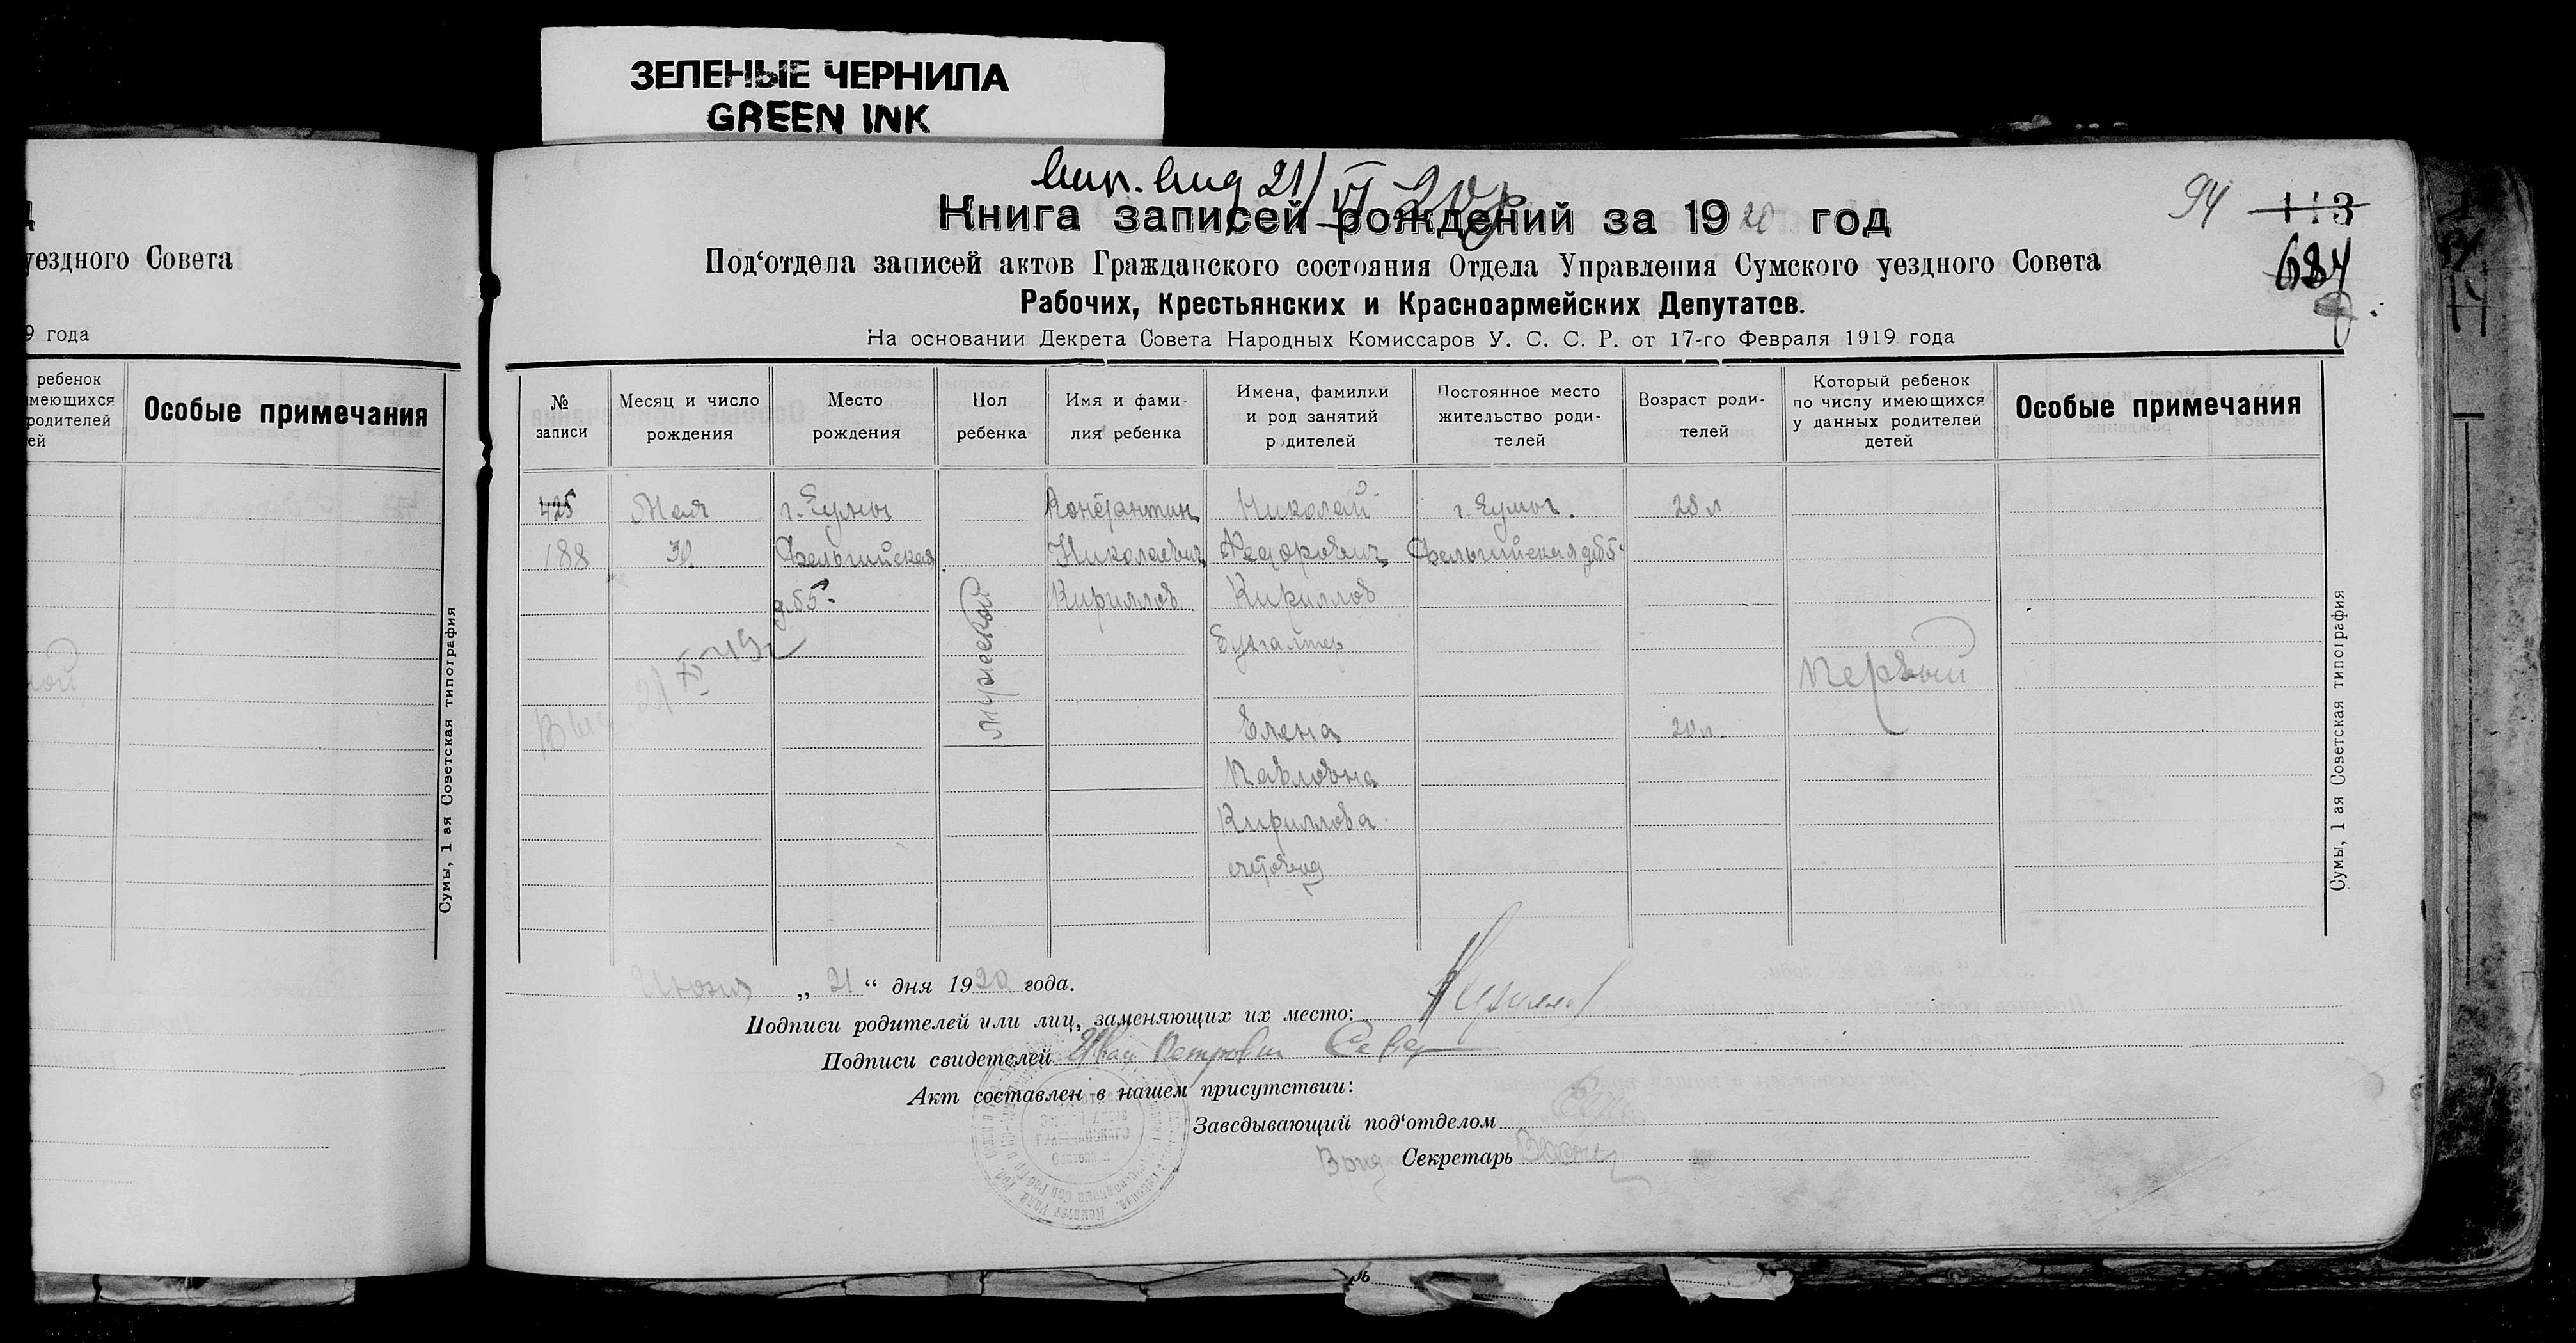 ЗЕЛЕНЫЕ ЧЕРНИЛА
GREEN INK
уездного Совета
9 года
ребенок
имеющихся
родителей
ей
Особые примечания
Сумы, 1 ая Советская типография
21/VI 20 г
94 113
684
Книга записей рождений за 1920 год
Под‘отдела записей актов Гражданского состояния Отдела Управления Сумского уездного Совета
Рабочих, Крестьянских и Красноармейских Депутатов.
На основании Декрета Совета Народных Комиссаров У. С. С. Р. от 17-го Февраля 1919 года
№ записи
Месяц и число рождения
Место рождения
Пол ребенка
Имя и фамилия ребенка
Имена, фамилии и род занятий родителей
Постоянное место жительство родителей
Возраст родителей
Который ребенок по числу имеющихся у данных родителей детей
Особые примечания
425
188
Мая
30
г. Сумы
Бельгийская
д. б 5
мужеской
Константин
Николаевич
Кириллов
Николай
Федорович
Кириллов
Бухгалтер
Елена
Павловна
Кириллова
счетовод
г. Сумы.
Бельгийская д б 5
28 л
20 л.
Первый
Июня „ 21 “ дня 1920 года.
Подписи родителей или лиц, заменяющих их место: Кириллов
Подписи свидетелей Иван Петрович
Акт составлен в нашем присутствии:
Заведывающий под‘отделом
Врид Секретарь
Сумы, 1 ая Советская типография